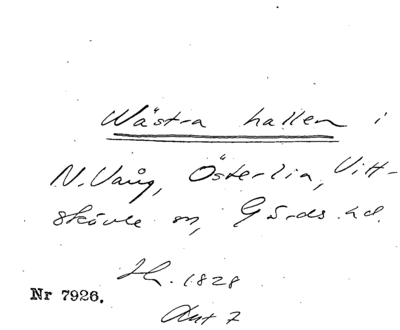 Wästra hallen i
N. Vång, Österlia, Vitt-
skövle sn, Gärds hd.
1828
Nr 7926.